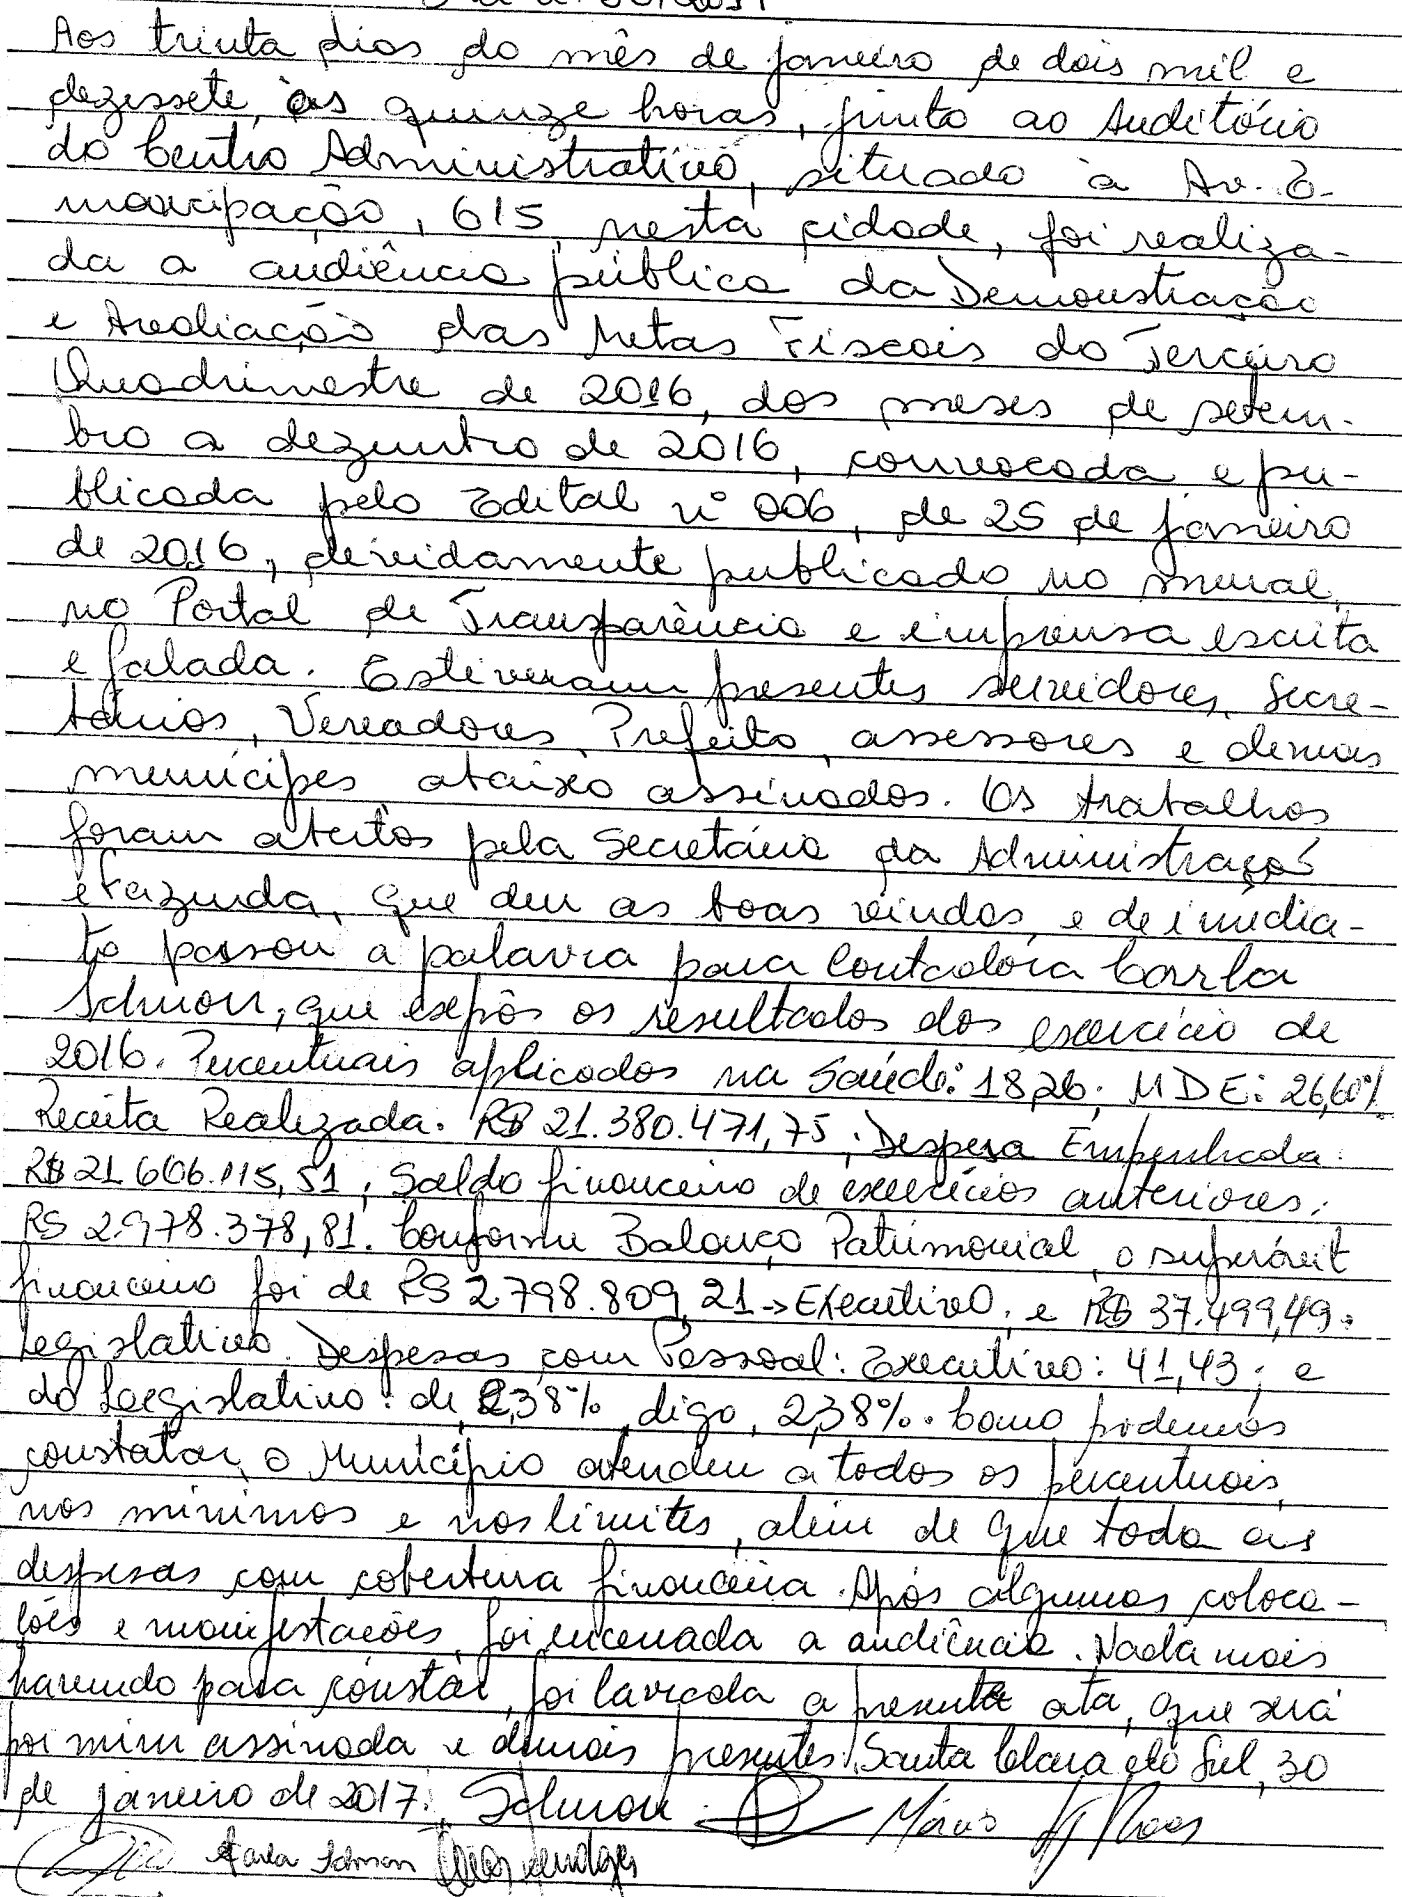 Aos trinta dias do mês de janeiro de dois mil e
dezessete, às quinze horas, junto ao Auditório
do Centro Administrativo, situado à Av. E-
mancipação, 615, nesta cidade, foi realiza-
da a audiência pública da Demonstração
e Avaliação das Metas Fiscais do Terceiro
Quadrimestre de 2016, dos meses de setem-
bro a dezembro de 2016, convocada e pu-
blicada pelo Edital nº 006, de 25 de janeiro
de 2016, devidamente publicado no mural,
no Portal de Transparência e imprensa escrita
e falada. Estiveram presentes servidores, Secre-
tários, Vereadores, Prefeito, assessores e demais
munícipes abaixo assinados. Os trabalhos
foram abertos pela Secretária da Administração
e Fazenda, que deu as boas vindas, e de imedia-
to passou a palavra para Contadora Carla
Schnorr, que expôs os resultados dos exercício de
2016. Percentuais aplicados na Saúde: 18,26; MDE: 26,60%
Receita Realizada: R$ 21.380.471,75; Despesa Empenhada:
R$ 21.606.115,51; Saldo financeiro de exercícios anteriores:
R$ 2.978.378,81. Conforme Balanço Patrimonial, o superávit
financeiro foi de R$ 2.798.809,21 -> Executivo; e R$ 37.499,49:
Legislativo. Despesas com Pessoal: Executivo: 41,43; e
do Legislativo: de 2,38%, digo, 2,38%. Como podemos
constatar, o Município atendeu a todos os percentuais,
nos mínimos e nos limites, além de que toda as
despesas com cobertura financeira. Após algumas coloca-
ções e manifestações, foi encerrada a audiência. Nada mais
havendo para constar, foi lavrada a presente ata, que será
por mim assinada e demais presentes. Santa Clara do Sul, 30
de janeiro de 2017. Schnorr
Carla Schnorr